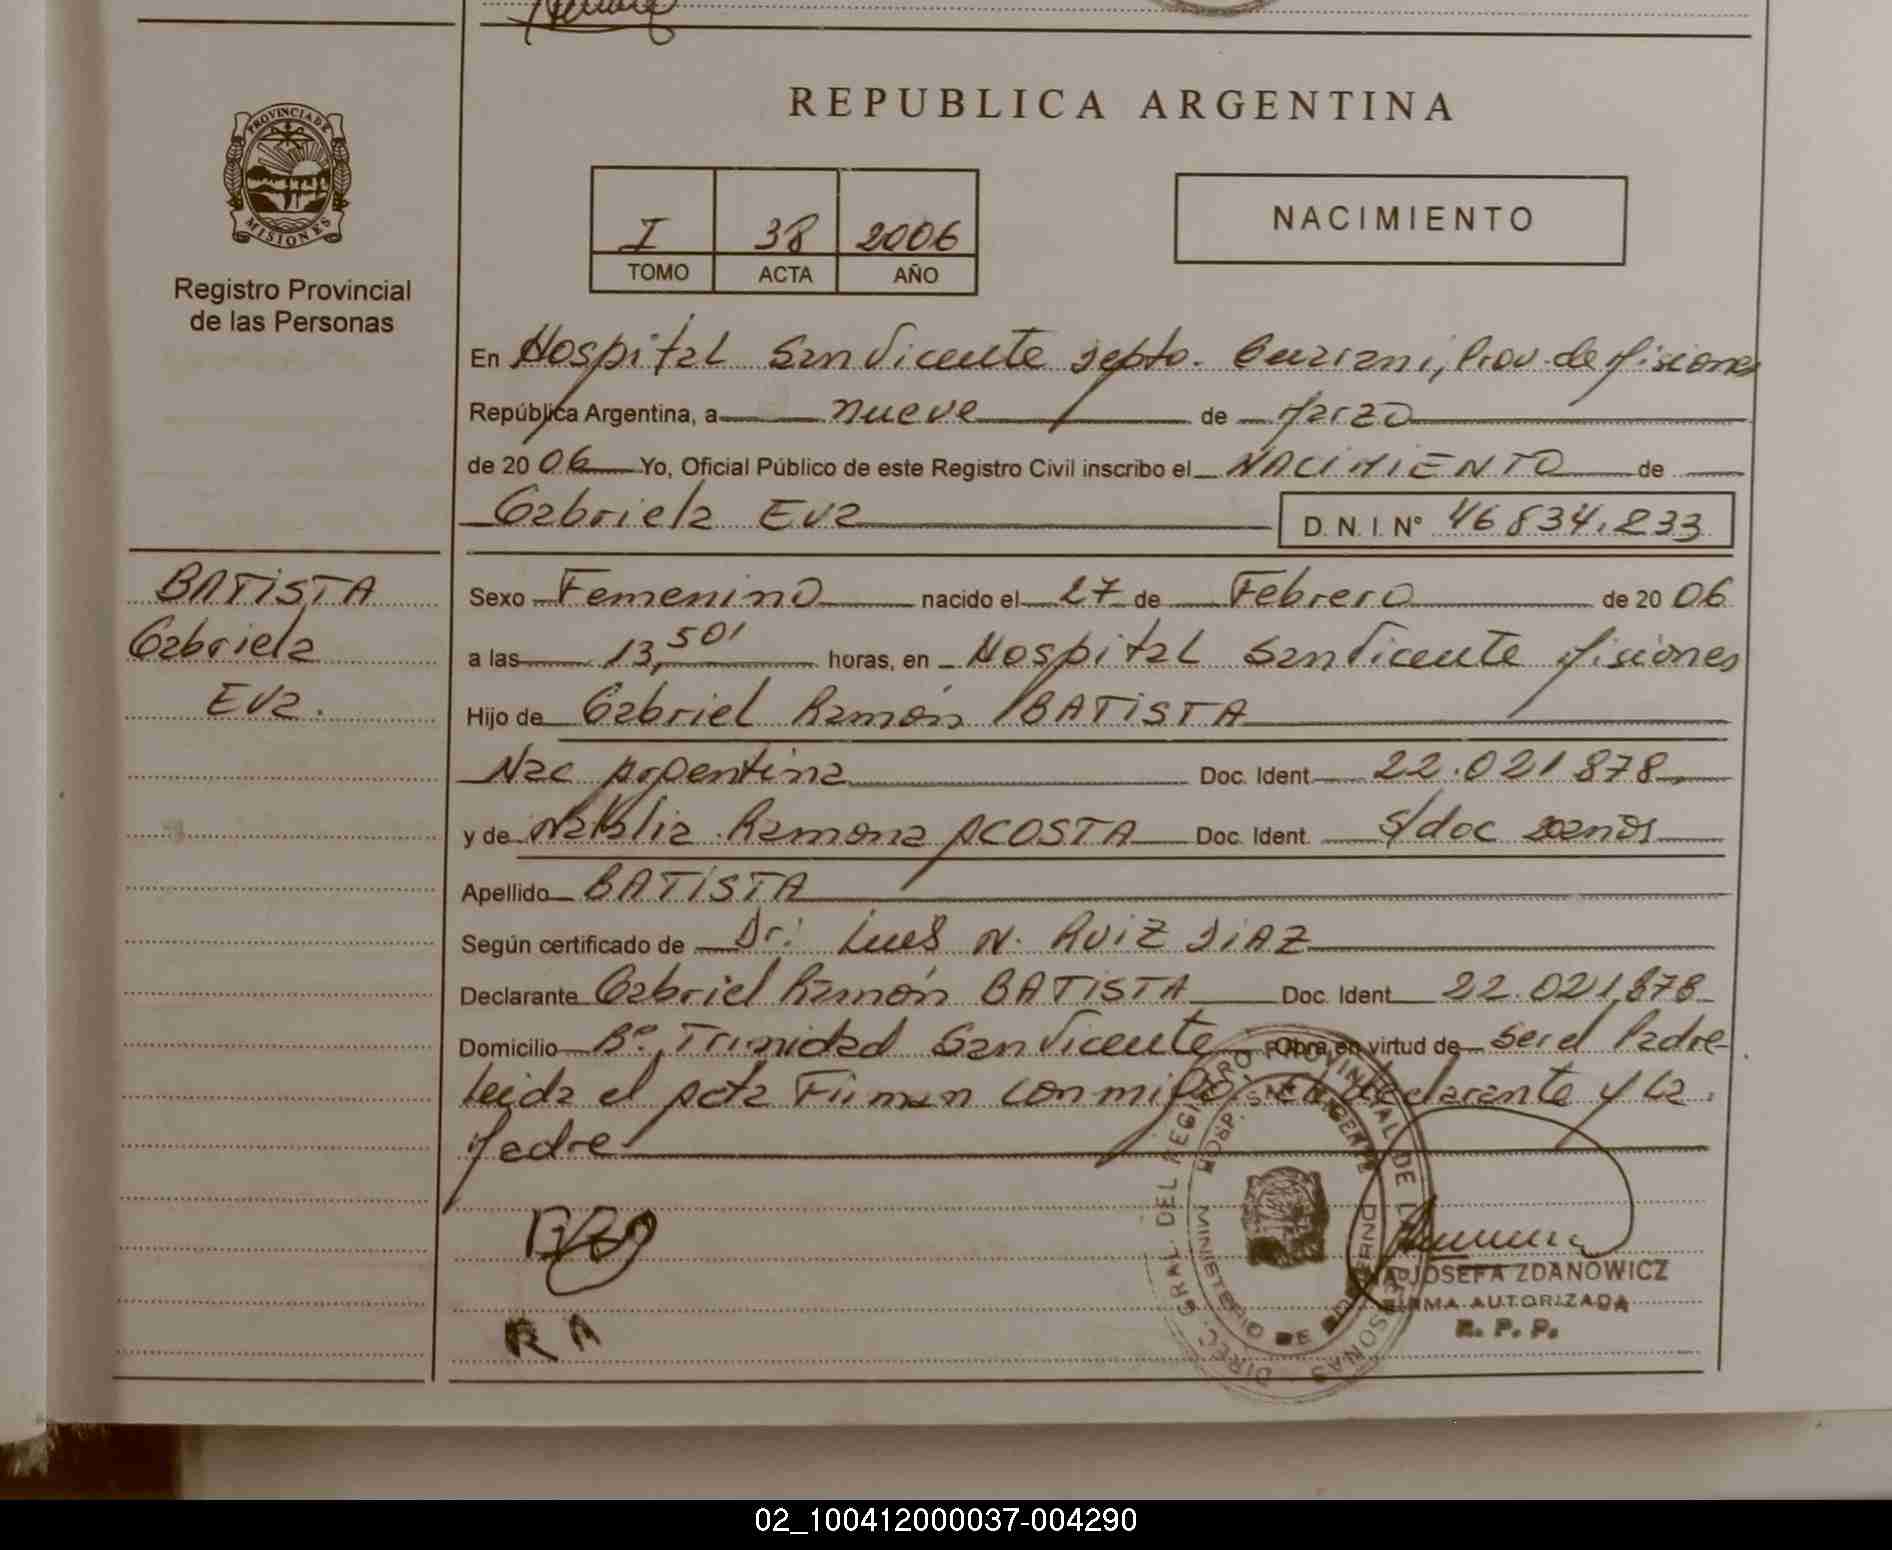 REPUBLICA ARGENTINA
PROVINCIA DE
MISIONES
Registro Provincial
de las Personas
I 38 2006
TOMO ACTA AÑO
NACIMIENTO
En Hospital San Vicente Depto. Guarani, Prov. de Misiones
República Argentina, a nueve de Marzo
de 20 06 Yo, Oficial Público de este Registro Civil inscribo el NACIMIENTO de
Gabriela Eva D.N.I. N° 46.834.233
BATISTA
Gabriela
Eva.
Sexo Femenino nacido el 27 de Febrero de 20 06
a las 13,50' horas, en Hospital San Vicente Misiones
Hijo de Gabriel Ramón BATISTA
Nac Argentina Doc. Ident. 22.021.878
y de Natalia Ramona ACOSTA Doc. Ident. S/doc 20 años
Apellido BATISTA
Según certificado de Dr: Luis N. RUIZ DIAZ
Declarante Gabriel Ramón BATISTA Doc. Ident. 22.021.878
Domicilio B°. Trinidad San Vicente Obra en virtud de ser el Padre
Leida el Acta Firman conmigo el declarante y la
Madre
R A
DIREC. GRAL. DEL REGISTRO PROVINCIAL DE LAS PERSONAS
HOSP. SAN VICENTE
MINISTERIO DE GOBIERNO
JOSEFA ZDANOWICZ
FIRMA AUTORIZADA
R. P. P.
02_100412000037-004290